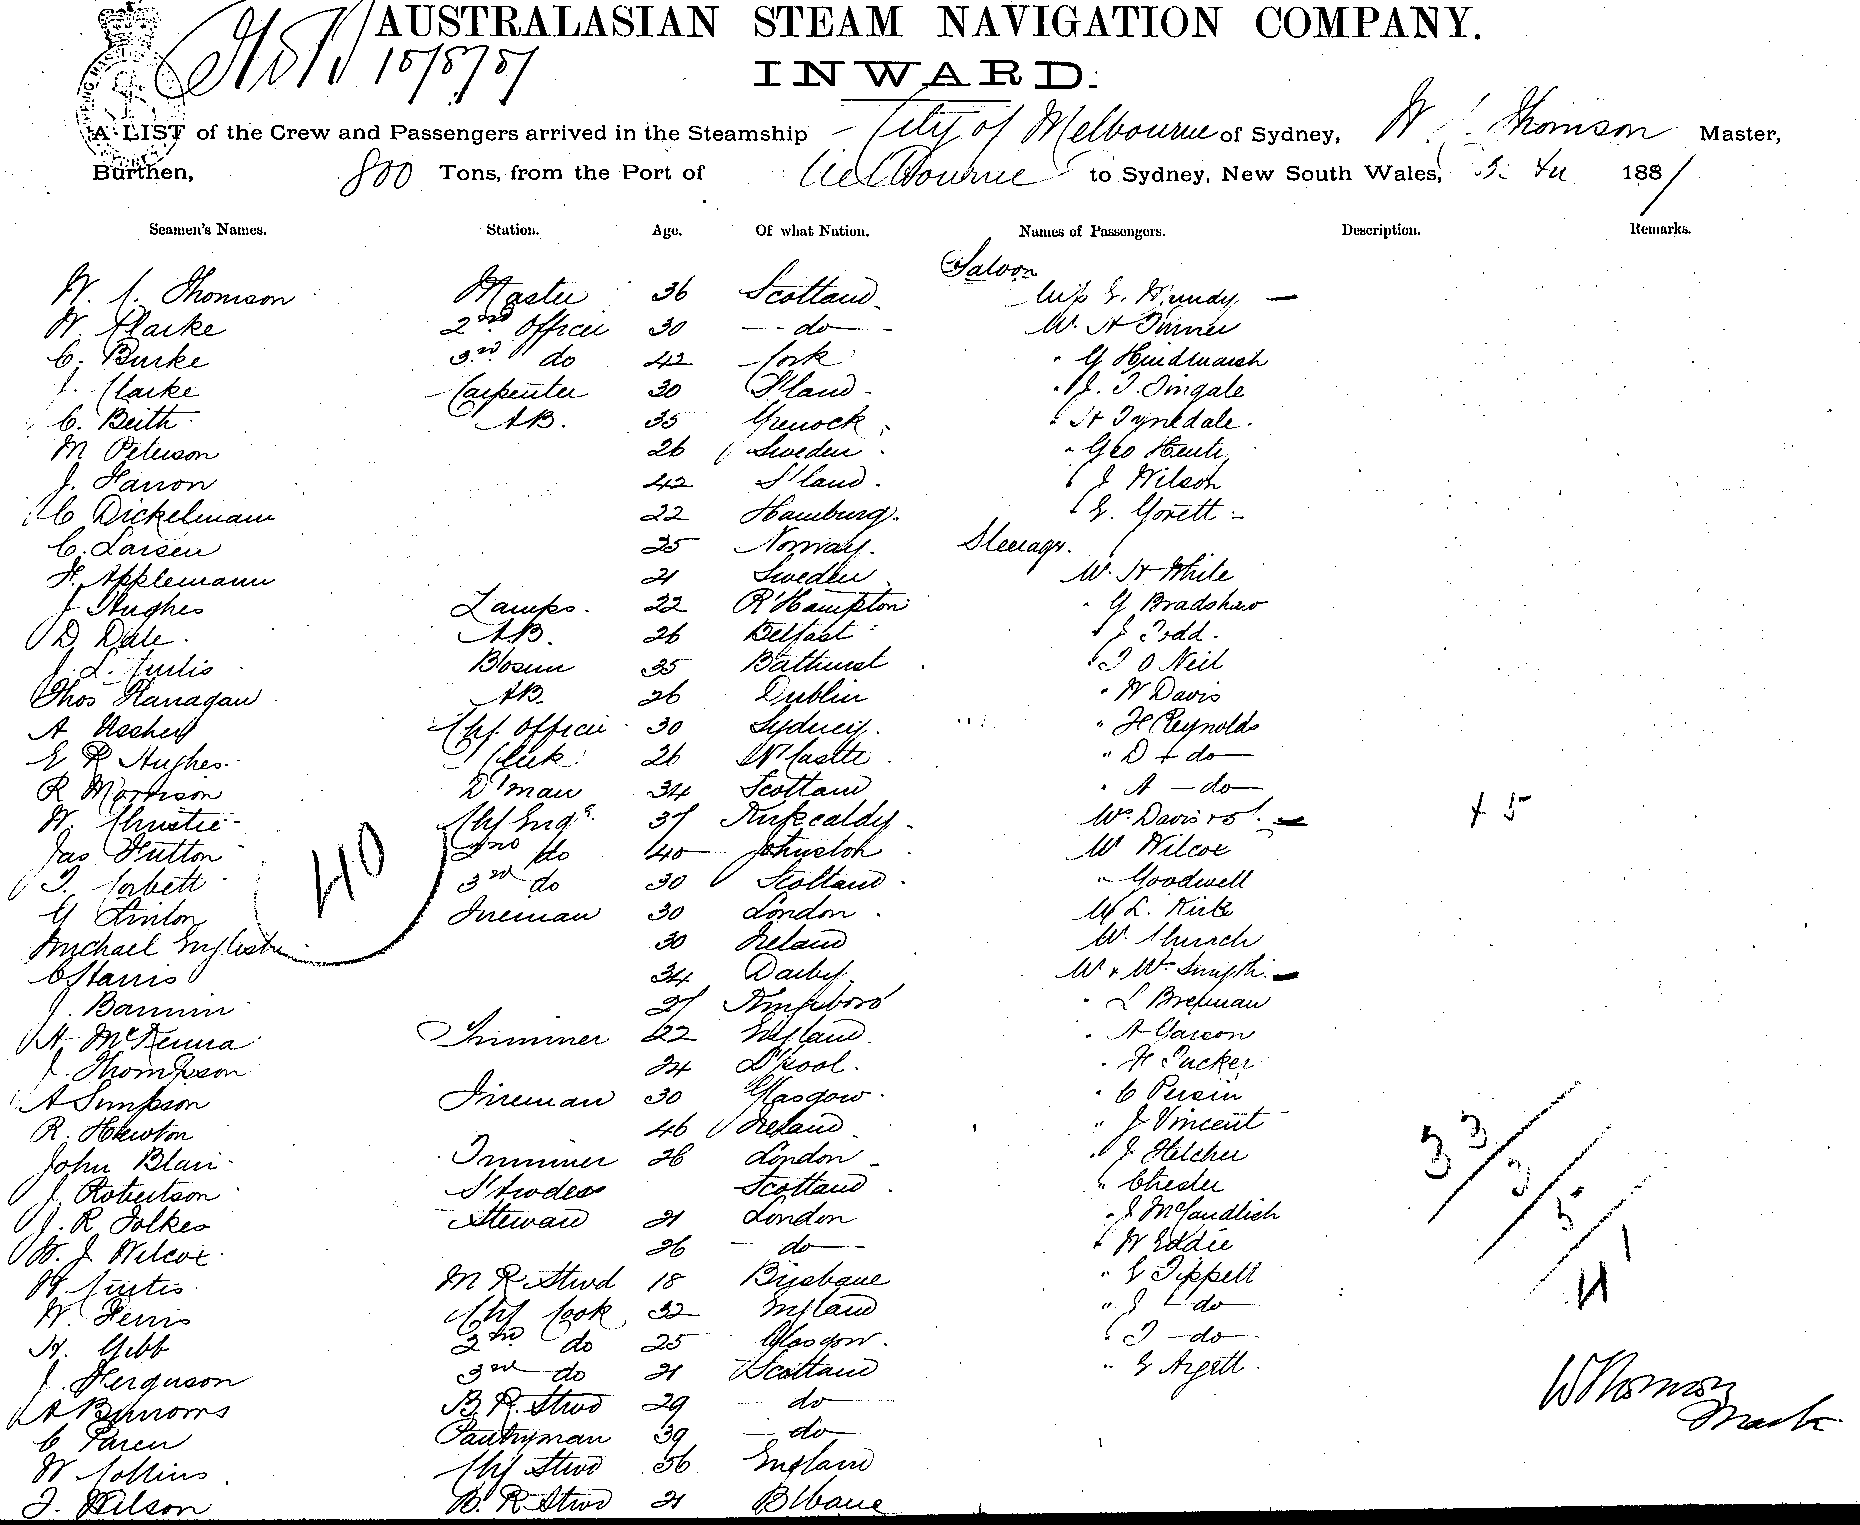 AUSTRALASIAN STEAM NAVIGATION COMPANY.
INWARD.
A LIST of the Crew and Passengers arrived in the Steamship City of Melbourne of Sydney, W Thomson Master,
Burthen, 800 Tons, from the Port of Melbourne to Sydney, New South Wales, 1881
Seamen's Names. Station. Age. Of what Nation. Names of Passengers. Description. Remarks.
Saloon
W. Thomson Master 36 Scotland Miss E. Mundy
W. Clarke 2nd Officer 30 do W. H Turner
C. Burke 3rd do 42 Cork " G Hindmarsh
J. Clarke Carpenter 30 S'land " J. T. Tingale
C. Beith AB. 35 Greenock " H Tynedale
M Peterson 26 Sweden " Geo
J. Farron 42 S'land " J Wilson
C Dickelmann 22 Hamburg " E.
C. Larsen 25 Norway Steerage
F. Applemann 21 Sweden W. H White
J Hughes Lamps 22 R'Hampton " G Bradshaw
D Dale AB. 26 Belfast " J Todd
J. L. Curtis Bosun 35 Bathurst " T O Neil
Thos Flanagan AB. 26 Dublin " W Davis
A Chf Officer 30 Sydney " H Reynolds
E R Hughes Clerk 26 N'Castle " D + do
R Morrison D'man 34 Scotland " A do
W. Christie Chf Engr 37 Kirkcaldy Mrs Davis + 5 + 5
Jas Hutton 2nd do 40 Johnston W Wilcox
T. Corbett 3rd do 30 Scotland " Goodwell
40
G Linton Fireman 30 London L. Kirk
Michael English 30 Ireland W. Church
C Harris 34 Darby M + Mrs Smyth
J. Bannin 27 Kingsboro' " L Brennan
A McKenna Trimmer 22 England " A Garson
J. Thompson 24 L'pool " H Tucker
A Simpson Fireman 30 Glasgow " C
R. Howton 46 Ireland " J Vincent
John Blair Trimmer 26 London " J Fletcher
J. Robertson S'twdess Scotland " Chester
J. R Folkes Steward 21 London " J McCandlish
W. J Wilcox 26 do " W Eddie
W Curtis M R Stwd 18 Brisbane " E Tippett
W. Ferris Chf Cook 32 England " J do
H. Gibb 2nd do 25 Glasgow " T do
J. Ferguson 3rd do 21 Scotland " E
A Burrows B. R. Stwd 29 do
C Pantryman 39 do
W Collins Chf Stwd 36 England
T. Wilson B. R Stwd 21 B'bane
33/3/5/41
W Thomson
Master